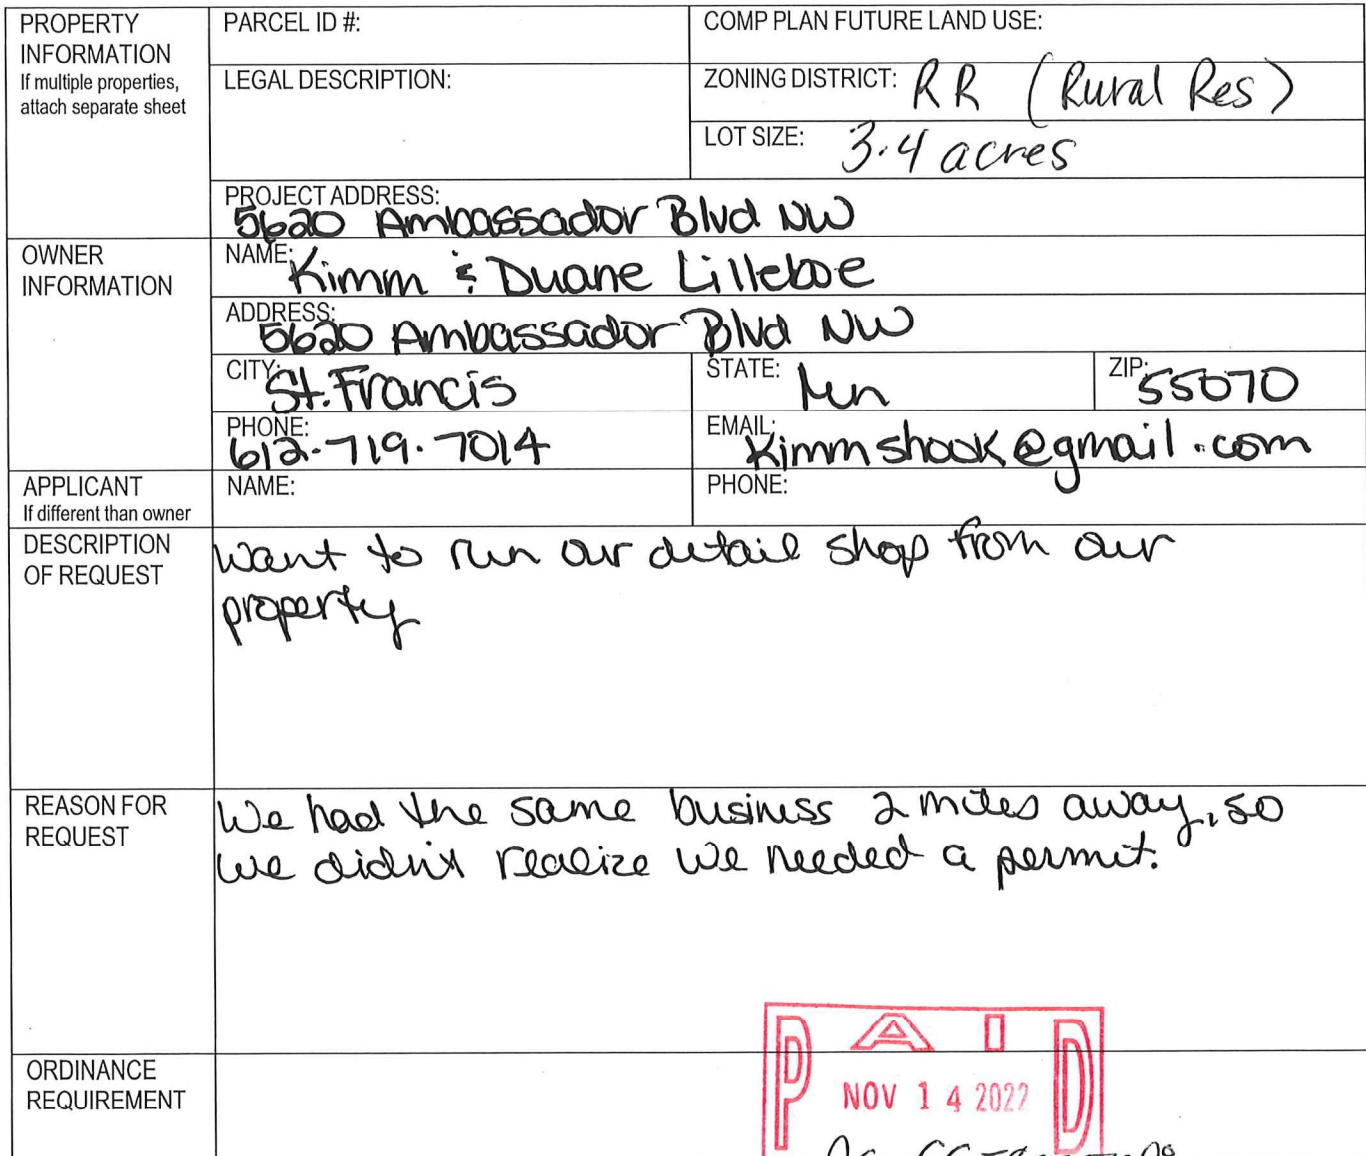 PROPERTY
INFORMATION
If multiple properties,
attach separate sheet
PARCEL ID #:
COMP PLAN FUTURE LAND USE:
LEGAL DESCRIPTION:
ZONING DISTRICT: RR (Rural Res)
LOT SIZE: 3.4 acres
PROJECT ADDRESS:
5620 Ambassador Blvd NW
OWNER
INFORMATION
NAME: Kimm & Duane Lilleboe
ADDRESS:
5620 Ambassador Blvd NW
CITY: St. Francis
STATE: Mn
ZIP: 55070
PHONE:
612-719-7014
EMAIL:
Kimmshook@gmail.com
APPLICANT
If different than owner
NAME:
PHONE:
DESCRIPTION
OF REQUEST
Want to run our detail shop from our
property
REASON FOR
REQUEST
We had the same business 2 miles away, so
we didn't realize we needed a permit.
ORDINANCE
REQUIREMENT
PAID
NOV 14 2022